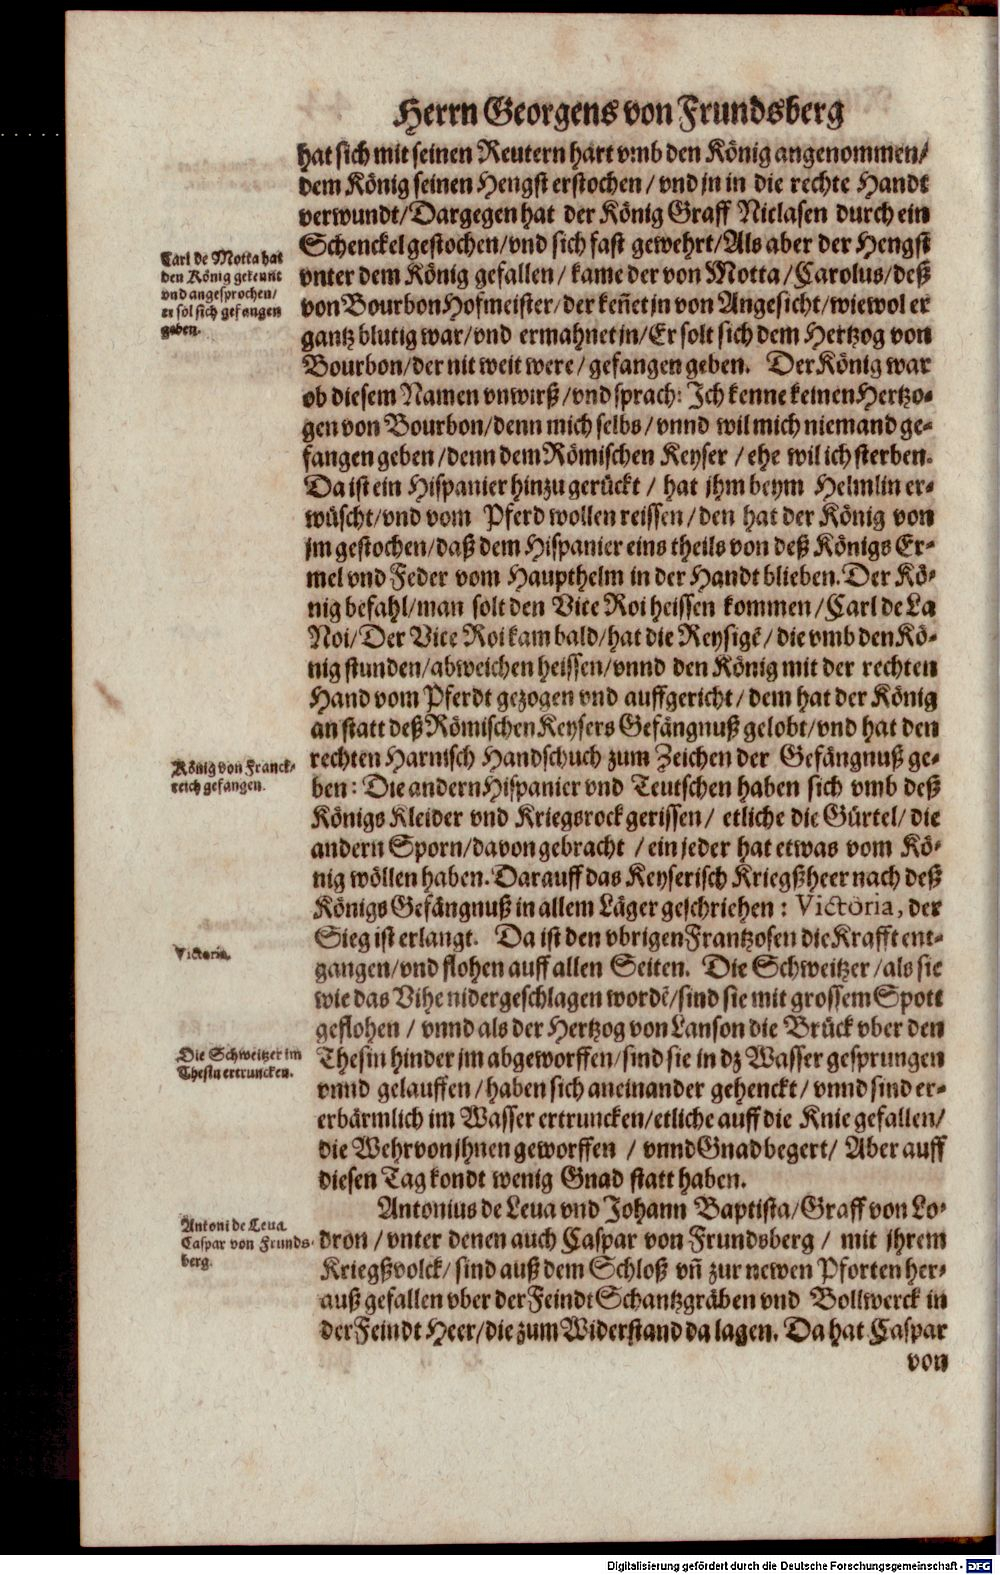 Herrn Georgens von Frundsberg
hat sich mit seinen Reutern hart vmb den König angenommen/
dem König seinen Hengst erstochen / vnd jn in die rechte Handt
verwundt/ Dargegen hat der König Graff Niclasen durch ein
Schenckel gestochen/ vnd sich fast gewehrt/ Als aber der Hengst
vnter dem König gefallen / kame der von Motta / Carolus/ deß
von Bourbon Hofmeister/ der keñet jn von Angesicht/ wiewol er
gantz blutig war/ vnd ermahnet jn/ Er solt sich dem Hertzog von
Bourbon/ der nit weit were / gefangen geben. Der König war
ob diesem Namen vnwirß / vnd sprach: Ich kenne keinen Hertzo-
gen von Bourbon/ denn mich selbs / vnnd wil mich niemand ge-
fangen geben / denn dem Römischen Keyser / ehe wil ich sterben.
Da ist ein Hispanier hinzu gerückt / hat jhm beym Helmlin er-
wüscht/ vnd vom Pferd wollen reissen / den hat der König von
jm gestochen/ daß dem Hispanier eins theils von deß Königs Er-
mel vnd Feder vom Haupthelm in der Handt blieben. Der Kö-
nig befahl/ man solt den Vice Roi heissen kommen / Carl de La
Noi/ Der Vice Roi kam bald/ hat die Reysigẽ/ die vmb den Kö-
nig stunden/ abweichen heissen/ vnnd den König mit der rechten
Hand vom Pferdt gezogen vnd auffgericht / dem hat der König
an statt deß Römischen Keysers Gefängnuß gelobt/ vnd hat den
rechten Harnisch Handschuch zum Zeichen der Gefängnuß ge-
ben: Die andern Hispanier vnd Teutschen haben sich vmb deß
Königs Kleider vnd Kriegsrock gerissen / etliche die Gürtel/ die
andern Sporn/ davon gebracht / ein jeder hat etwas vom Kö-
nig wöllen haben. Darauff das Keyserisch Kriegßheer nach deß
Königs Gefängnuß in allem Läger geschriehen : Victoria, der
Sieg ist erlangt. Da ist den vbrigen Frantzosen die Krafft ent-
gangen/ vnd flohen auff allen Seiten. Die Schweitzer / als sie
wie das Vihe nidergeschlagen wordẽ/ sind sie mit grossem Spott
geflohen / vnnd als der Hertzog von Lanson die Brück vber den
Thesin hinder jm abgeworffen/ sind sie in dz Wasser gesprungen
vnnd gelauffen / haben sich aneinander gehenckt / vnnd sind er-
erbärmlich im Wasser ertruncken/ etliche auff die Knie gefallen/
die Wehr von jhnen geworffen / vnnd Gnad begert/ Aber auff
diesen Tag kondt wenig Gnad statt haben.
Antonius de Leua vnd Johann Baptista/ Graff von Lo-
dron / vnter denen auch Caspar von Frundsberg / mit jhrem
Kriegßvolck/ sind auß dem Schloß vñ zur newen Pforten her-
auß gefallen vber der Feindt Schantzgräben vnd Bollwerck in
der Feindt Heer/ die zum Widerstand da lagen. Da hat Caspar
von
Carl de Motta hat
den König gekennt
vnd angesprochen/
er sol sich gefangen
geben.
König von Franck-
reich gefangen.
Victoria.
Die Schweitzer im
Thesin ertruncken.
Antoni de Leua.
Caspar von Frunds-
berg.
Digitalisierung gefördert durch die Deutsche Forschungsgemeinschaft - DFG